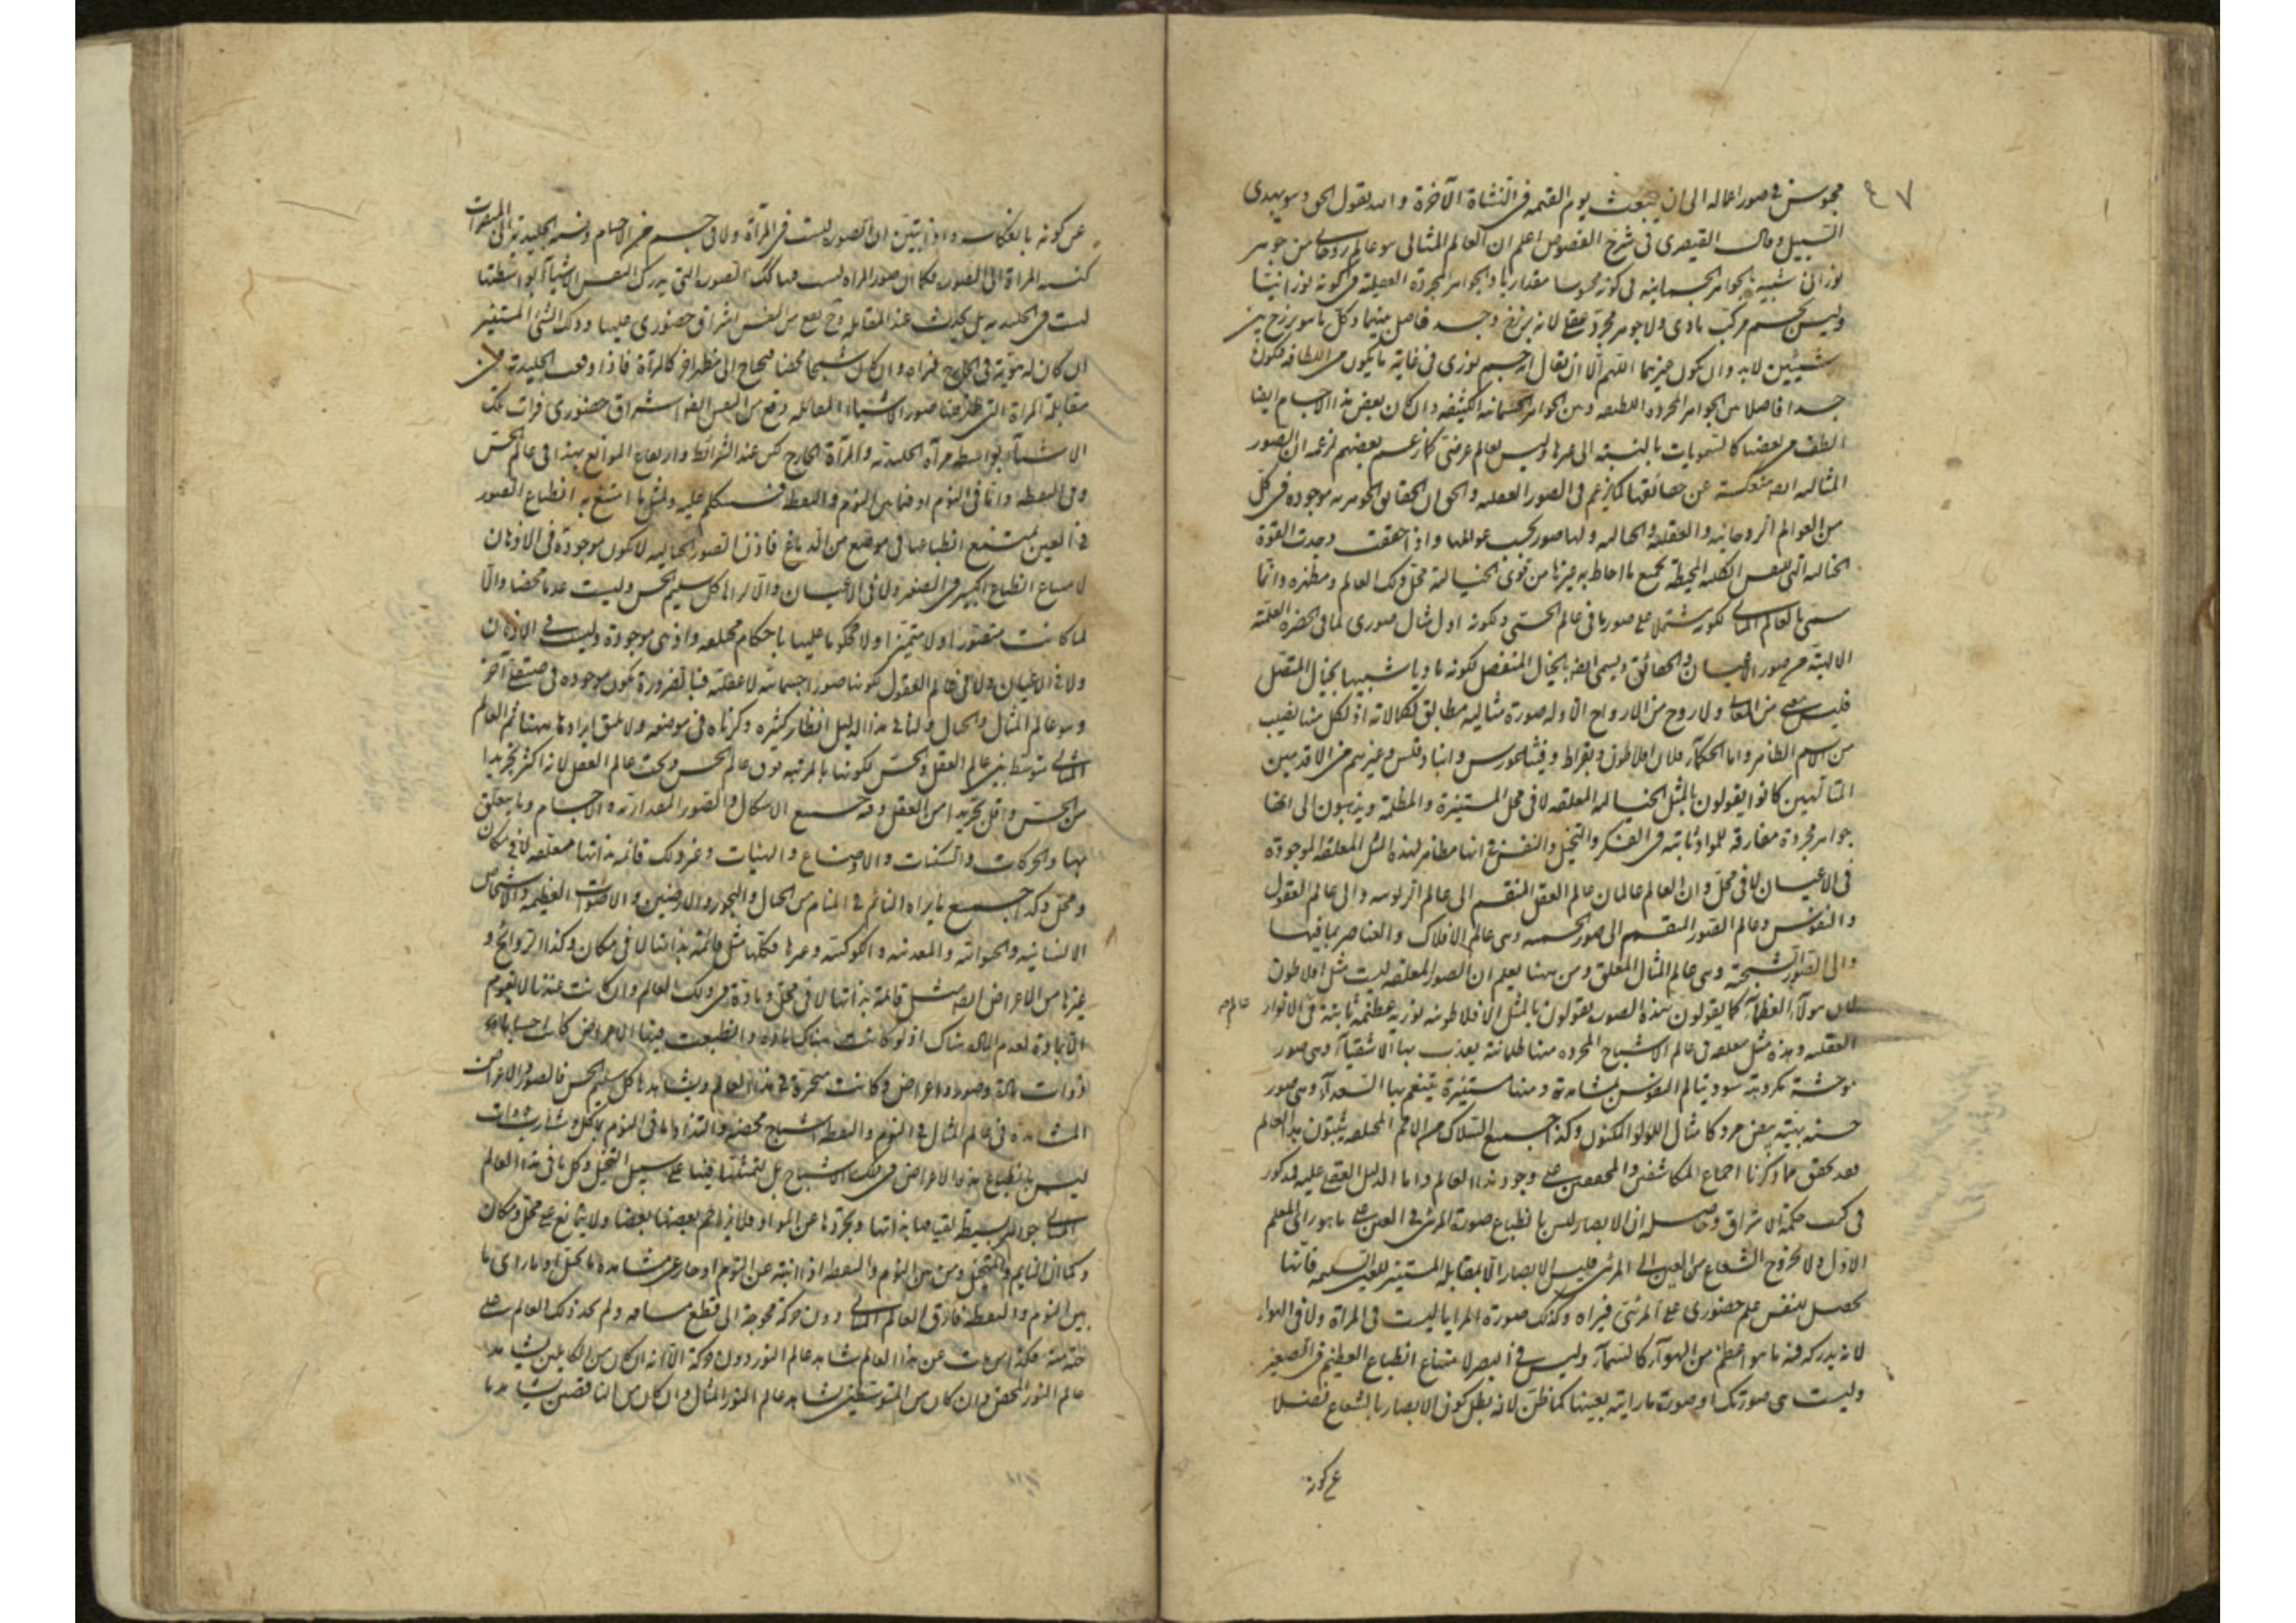 ٤٧
محبوس فى صور اعماله الى ان يبعث يوم القيمه فى النشاة الآخرة والله يقول الحق وهو يهدى
السبيل وقال القيصرى فى شرح الفصوص اعلم ان العالم المثالى هو عالم روحانى من جوهر
نورانى شبيه بالجواهر الجسمانيه فى كونه محسوسا مقداريا وبالجواهر المجردة العقليه فى كونه نورانيتا
وليس بجسم مركب مادى ولا جوهر مجرد عقلى لانه برزخ وحد فاصل بينهما وكل ما هو برزخ بين
شيئين لا بد وان يكون غيرهما اللهم الا ان يقال انه جسم نورى فى غاية ما يكون من اللطافه فيكون
حدا فاصلا بين الجواهر المجرده اللطيفه وبين الجواهر الجسمانيه الكثيفه وان كان بعض هذه الاجسام ايضا
الطف من بعضها كالسمويات بالنسبة الى غيرها وليس بعالم عرضى كما زعم بعضهم لزعمه ان الصور
المثاليه منفكة عن حقائقها كما زعم فى الصور العقليه والحق ان الحقائق الجوهريه موجوده فى كل
من العوالم الروحانيه والعقليه والخياليه ولها صور بحسب عوالمها واذا حققت وجدت القوة
الخياليه التى للنفس الكليه المحيطه بجميع ما احاط به غيرها من القوى الخياليه محل ذلك العالم ومظهره وانما
سمى بالعالم المثالى لكونه مشتملا على صور ما فى عالم الحسى ولكونه اول مثال صورى لما فى الحضرة العلمية
الالهيه من صور الاعيان والحقائق ويسمى ايضا بالخيال المنفصل لكونه ماديا شبيها بخيال المتصل
فليس معنى من المعانى ولا روح من الارواح الا وله صورة مثاليه مطابق لكمالاته اذ لكل منها نصيب
من الاسم الظاهر واما الحكماء فلان افلاطون وبقراط وفيثاغورس وانباذقلس وغيرهم من الاقدمين
المتألهين كانوا يقولون بالمثل الخياليه المعلقه لا فى محل المستنيرة والمظلمة ويذهبون الى انها
جواهر مجردة مفارقه للمواد ثابتة فى الفكر والتخيل والنفس فى انها مظاهر لهذه المثل المعلقه الموجودة
فى الاعيان لا فى محل وان العالم عالمان عالم العقل المنقسم الى عالم الربوبيه والى عالم العقول
والنفوس وعالم الصور المنقسم الى صور الجسميه وهى عالم الافلاك والعناصر بما فيها
والى الصور الشبحية وهى عالم المثال المعلق ومن ههنا يعلم ان الصور المعلقه ليست مثل افلاطون
لان هولاء العظماء كما يقولون بهذه الصور يقولون بالمثل الافلاطونيه نورية عظيمة ثابتة فى الانوار عالم
العقليه وهذه مثل معلقه فى عالم الاشباح المجرده منها ظلمانية يعذب بها الاشقياء وهى صور
موحشة مكروهة سود يتألم النفوس بمشاهدتها ومنها مستنيرة يتنعم بها السعداء وهى صور
حسنه بهية بيض مرد كامثال اللؤلؤ المكنون وكذا جميع السلاك من الامم المختلفه يثبتون هذا العالم
فقد تحقق مما ذكرنا اجماع المكاشفين والمحققين على وجود هذا العالم واما الدليل العقلى عليه فمذكور
فى كتب حكمة الاشراق وحاصله ان الابصار ليس بانطباع صورة المرئى فى العين على ما هو رأى المعلم
الاول ولا بخروج الشعاع من العين الى المرئى فليس الابصار الا بمقابله المستنير للعين السليمه فانها
يحصل للنفس علم حضورى على المرئى فيراه وكذلك صورة المرايا ليست فى المراة ولا فى الهواء
لانه يدركه فيه ما هو اعظم من الهواء كالسماء وليس فى البصر لامتناع انطباع العظيم فى الصغير
وليست هى صورتك او صورة ما رايته بعينها كما ظن لانه بطل كون الابصار بالشعاع فضلا
عن كونه
عن كونه بانعكاسه واذ تبين ان الصور ليست فى المرآة ولا فى جسم من الاجسام ونسبه الجليديه الى المبصرات
كنسبه المراة الى الصور فكما ان صور المراه ليست فيها كذلك الصور التى يدرك النفس الاشياء بواسطتها
ليست فى الجليديه بل يحدث عند المقابله وح يقع من النفس اشراق حضورى عليها وذلك الشئ المستنير
ان كان له هوية فى الخارج فيراه وان كان شبحا محضا فيحتاج الى مظهر اخر كالمرآة فاذا وقعت الجليدية فى
مقابلة المراة التى ظهر فيها صور الاشياء المقابله وقع من النفس ايضا اشراق حضورى فرات تلك
الاشياء بواسطه مرآه الجليديه والمرآة الخارج لكن عند الشرائط وارتفاع الموانع هذا فى عالم الحس
وفى اليقظه واما فى النوم او فيما بين النوم واليقظه فسنتكلم عليه ولمثل ما امتنع به انطباع الصور
فى العين يمتنع انطباعها فى موضع من الدماغ فاذن الصور الخياليه لا يكون موجودة فى الاذهان
لامتناع انطباع الكبير فى الصغير ولا فى الاعيان والا لراها كل سليم الحس وليست عدما محضا والا
لما كانت متصورا ولا متميزا ولا محكوما عليها باحكام مختلفه واذ هى موجودة وليست فى الاذهان
ولا فى الاعيان ولا فى عالم العقول لكونها صورا جسمانيه لا عقليه فبالضرورة يكون موجوده فى صقع آخر
وهو عالم المثال والخيال ولنا فى هذا الدليل انظار كثيره وذكرناه فى موضعه ولا يليق ايرادها ههنا ثم العالم
المثالى متوسط بين عالم العقل والحس لكونها بالمرتبه فوق عالم الحس وتحت عالم العقل لانه اكثر تجريدا
من الحس واقل تجريدا من العقل وفيه جميع الاشكال والصور المقداريه والاجسام وما يتعلق
بها والحركات والسكنات والاوضاع والهيئات وغير ذلك قائمه بذاتها معلقه لا فى مكان
ومحل وكذا جميع ما يراه النائم فى المنام من الجبال والبحور والارضين والاصوات العظيمه والاشخاص
الانسانيه والحيوانيه والمعدنيه والكوكبيه وغيرها فكلها مثل قائمة بذاتها لا فى مكان وكذا الروائح و
غيرها من الاعراض ايضا مثل قائمة بذاتها لا فى محل ومادة فى ذلك العالم وان كانت عندنا لا تقوم
الا بمادة لعدم المادة هناك اذ لو كانت هناك مادة وانطبعت فيها الاعراض كانت اجسامها
ذوات مادة وصور واعراض وكانت متحيزة فى هذا العالم ويشاهدها كل سليم الحس فالصور والاعراض
المشاهدة فى عالم المثال فى النوم واليقظه اشباح محضه والتذاذنا فى النوم بمأكل ومشارب شهوات
ليس بانطباع هذه الاعراض فى تلك الاشباح بل لتمثلها فينا على سبيل التخيل وكل ما فى هذا العالم
المثالى جواهر بسيطه لقيامها بذاتها وتجردها عن المواد فلا يزاحم بعضها بعضا ولا يتمانع على محل ومكان
وكما ان النايم والمتخيل ومن بين النوم واليقظه اذا انتبه عن النوم او عاد عن مشاهدة ما تخيل او ما رأى ما
بين النوم واليقظه فارق العالم المثالى دون حركة محوجة الى قطع مسافه ولم يجد ذلك العالم على
جهة منه فكذا من مات عن هذا العالم شاهد عالم النور دون حركة الا انه ان كان من الكاملين يشاهد
عالم النور المحض وان كان من المتوسطين يشاهد عالم النور المثال وان كان من الناقصين يشاهد ما